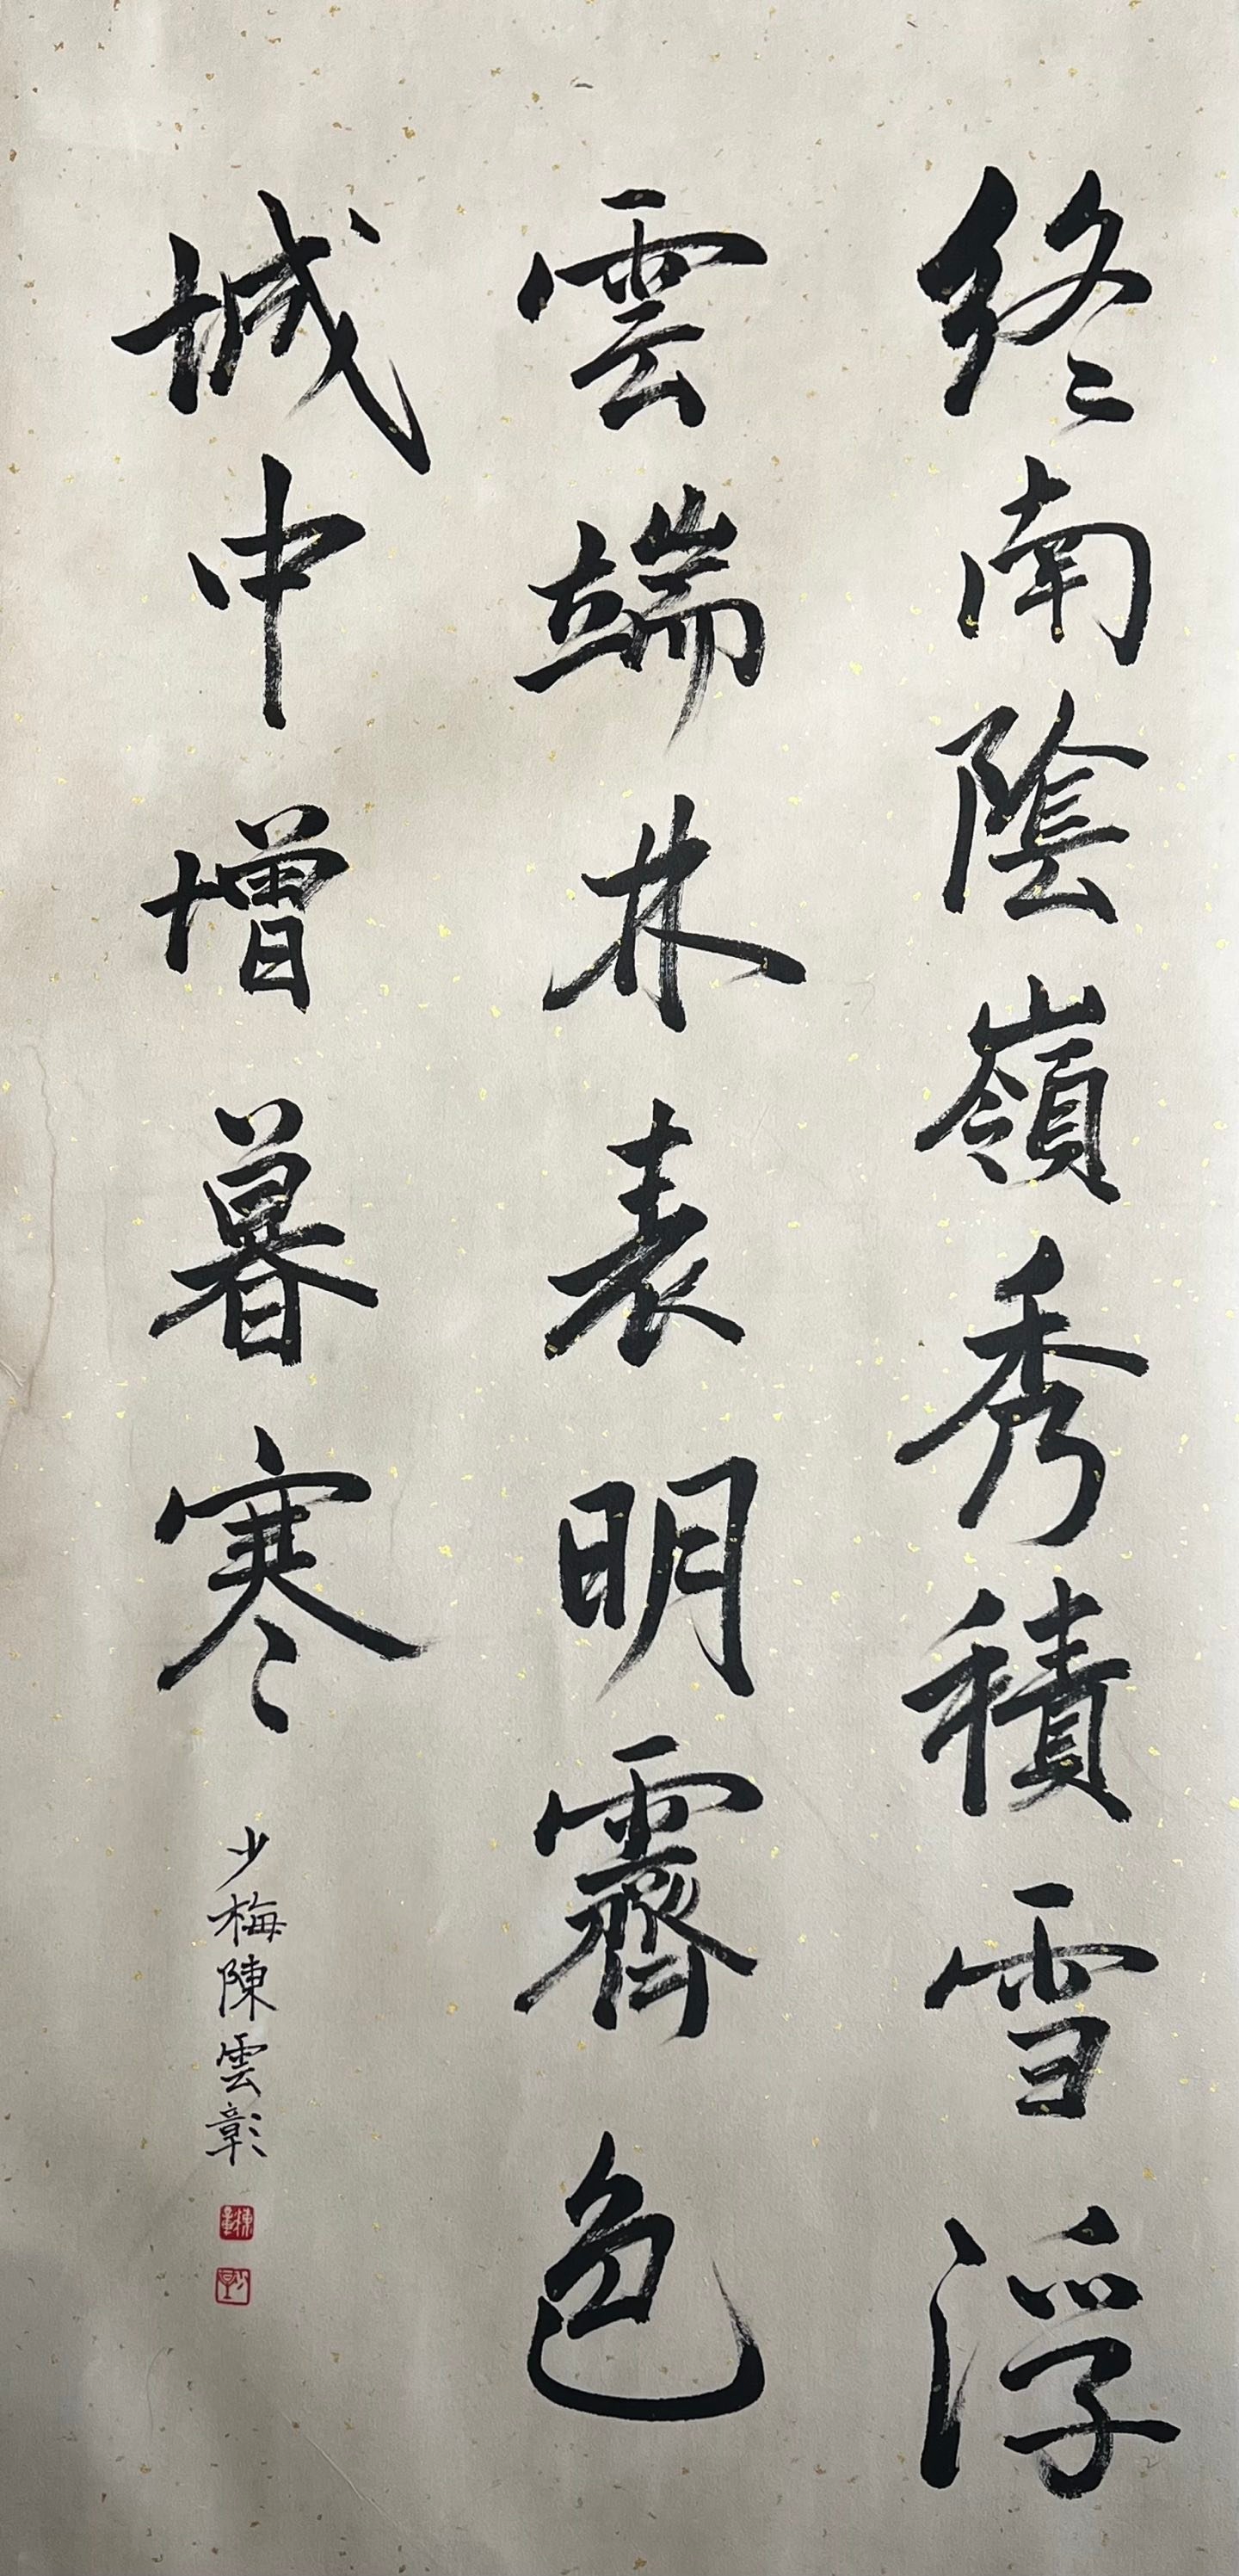 終南陰嶺秀積雪浮
雲端林表明霽色
城中增暮寒
少梅陳雲彰